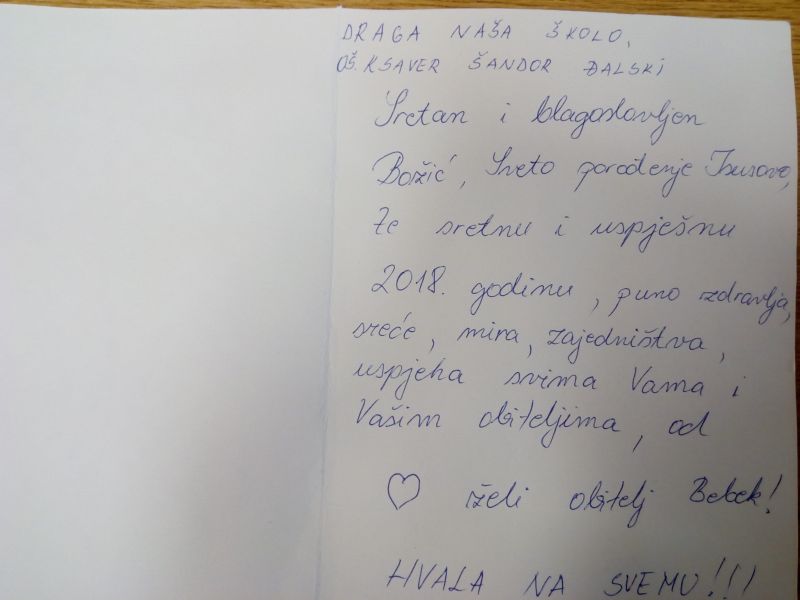 DRAGA NAŠA ŠKOLO,
OŠ. KSAVER ŠANDOR ĐALSKI
Sretan i blagoslovljen
Božić, Sveto porođenje Isusovo,
te sretnu i uspješnu
2018. godinu, puno zdravlja,
sreće, mira, zajedništva,
uspjeha svima Vama i
Vašim obiteljima, od
♡ želi obitelj Bebek!
HVALA NA SVEMU!!!